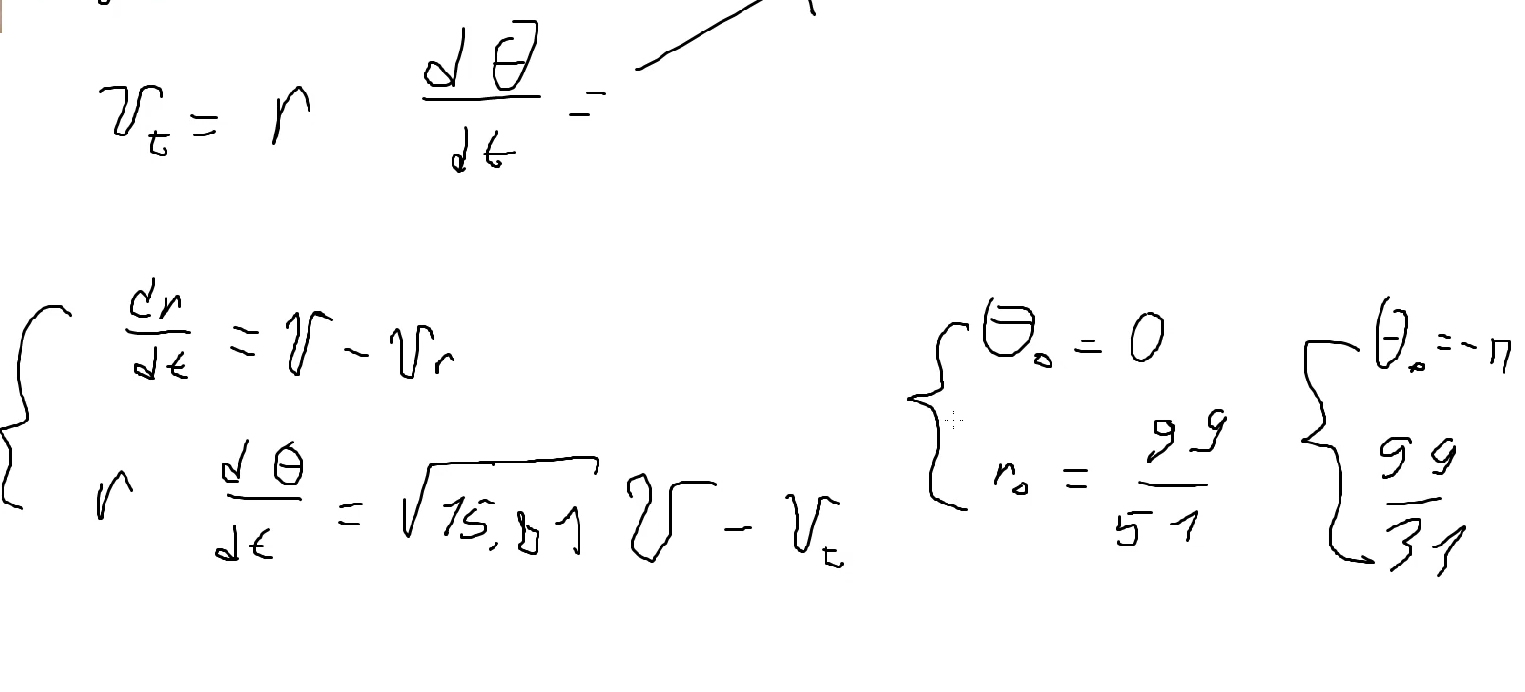 v_t = r dθ/dt =
{ dr/dt = v - v_r
r dθ/dt = √15,81 v - v_t
{ θ_0 = 0
r_0 = 99/51
{ θ_0 = -π
99/31